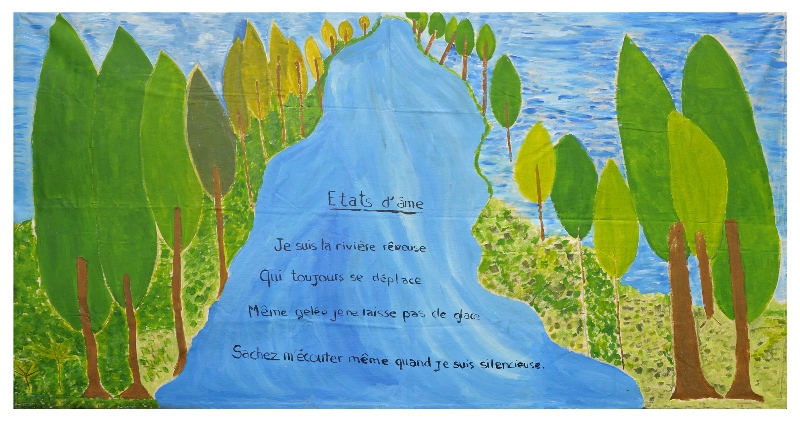 Etats d'âme
Je suis la rivière rêveuse
Qui toujours se déplace
Même gelée je ne laisse pas de glace
Sachez m'écouter même quand je suis silencieuse.